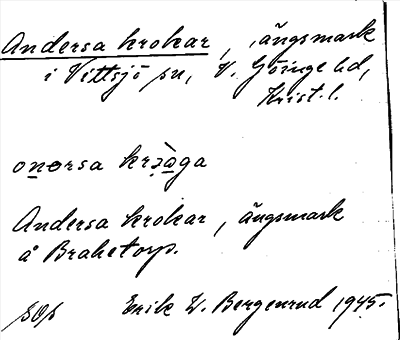 Andersa krokar, ängsmark
i Vittsjö sn, V. Göinge hd,
Krist. l.
onorsa krɔ̀aga
Andersa krokar, ängsmark
å Braketorp.
sop Erik W. Bergenrud 1945.